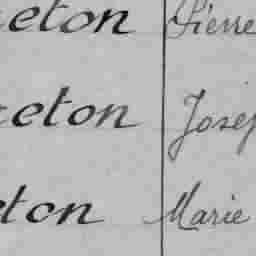 eton Pierre
eton Josep
eton Marie